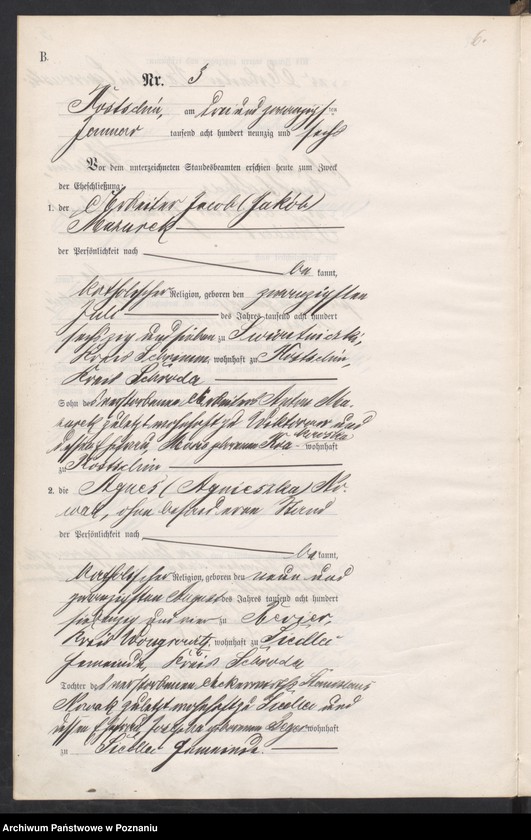 6.
B.
Nr. 5
Kostschin, am drei und zwanzigsten
Januar tausend acht hundert neunzig und sechs
Vor dem unterzeichneten Standesbeamten erschien heute zum Zweck
der Eheschließung:
1. der Arbeiter Jacob (Jakób)
Mazurek
der Persönlichkeit nach
be kannt,
katholischer Religion, geboren den zwanzigsten
Juli des Jahres tausend acht hundert
sechszig und sieben zu
Kreis Schrimm, wohnhaft zu Kostschin,
Kreis Schroda
Sohn des verstorbenen Arbeiters Anton Ma-
zurek zuletzt wohnhaft zu Wiktorowo und
dessen Ehefrau, Maria geborenen wohnhaft
zu Kostschin
2. die Agnes (Agnieszka) No-
wak, ohne besonderen Stand
der Persönlichkeit nach
be kannt,
katholischer Religion, geboren den neun und
zwanzigsten August des Jahres tausend acht hundert
siebenzig und vier zu Revier,
Kreis Wongrowitz, wohnhaft zu Siedlec
Gemeinde, Kreis Schroda
Tochter des verstorbenen Ackerwirths Stanislaus
Nowak zuletzt wohnhaft zu Siedlec und
dessen Ehefrau, Josepha geborenen wohnhaft
zu Siedlec Gemeinde.
Archiwum Państwowe w Poznaniu